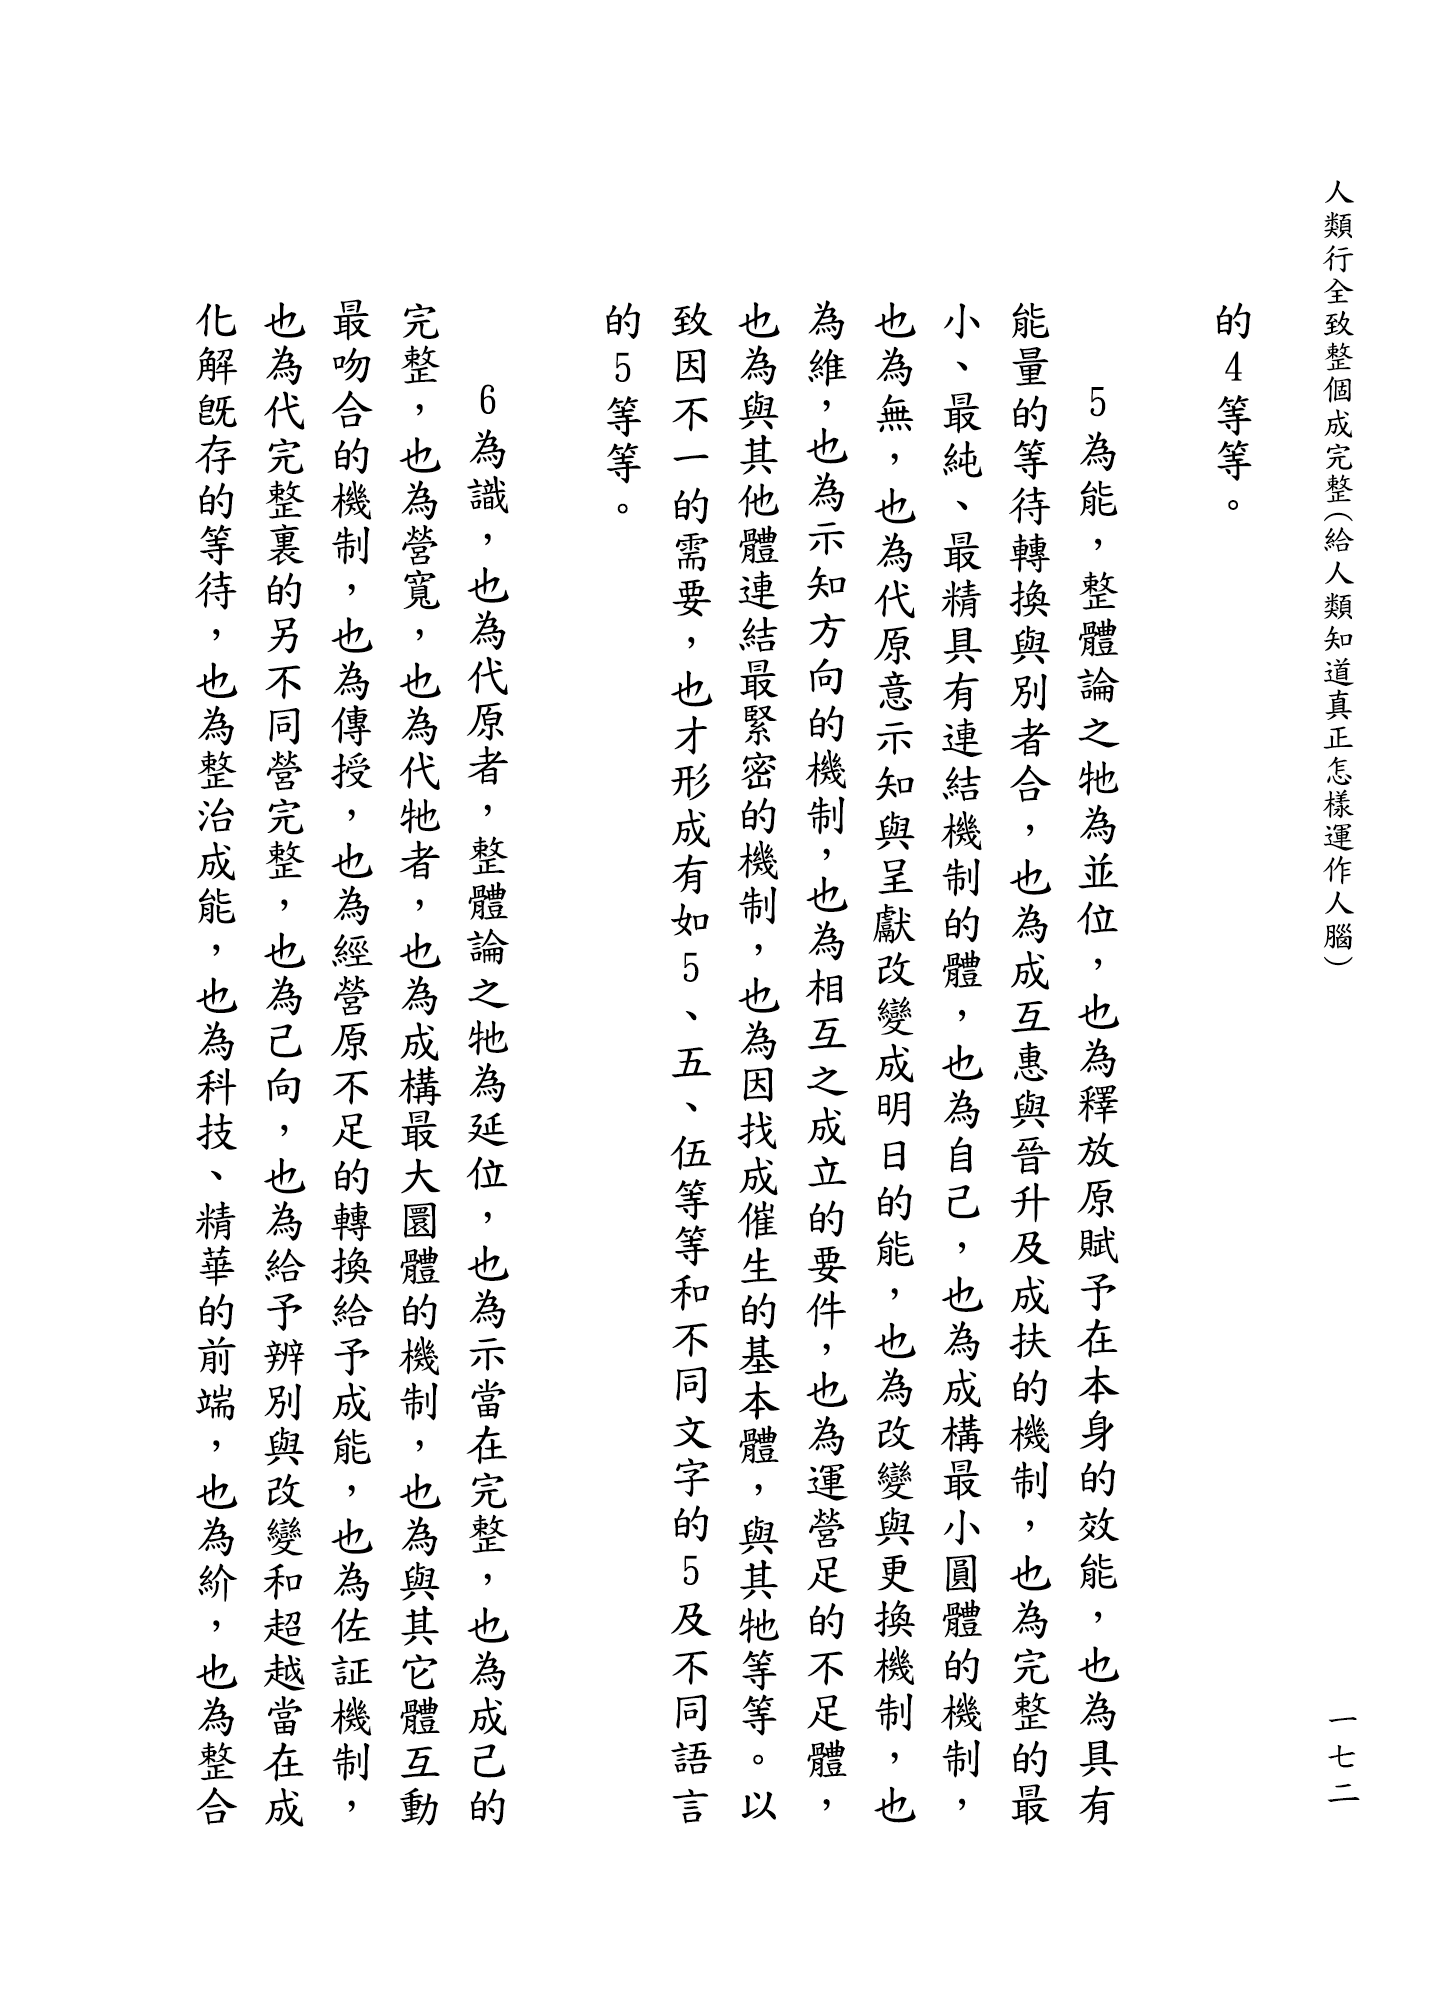 人類行全致整個成完整(給人類知道真正怎樣運作人腦)
一七二
的4等等。
5為能，整體論之牠為並位，也為釋放原賦予在本身的效能，也為具有
能量的等待轉換與別者合，也為成互惠與晉升及成扶的機制，也為完整的最
小、最純、最精具有連結機制的體，也為自己，也為成構最小圓體的機制，
也為無，也為代原意示知與呈獻改變成明日的能，也為改變與更換機制，也
為維，也為示知方向的機制，也為相互之成立的要件，也為運營足的不足體，
也為與其他體連結最緊密的機制，也為因找成催生的基本體，與其牠等等。以
致因不一的需要，也才形成有如5、五、伍等等和不同文字的5及不同語言
的5等等。
6為識，也為代原者，整體論之牠為延位，也為示當在完整，也為成己的
完整，也為營寬，也為代牠者，也為成構最大圜體的機制，也為與其它體互動
最吻合的機制，也為傳授，也為經營原不足的轉換給予成能，也為佐証機制，
也為代完整裏的另不同營完整，也為己向，也為給予辨別與改變和超越當在成
化解旣存的等待，也為整治成能，也為科技、精華的前端，也為紒，也為整合